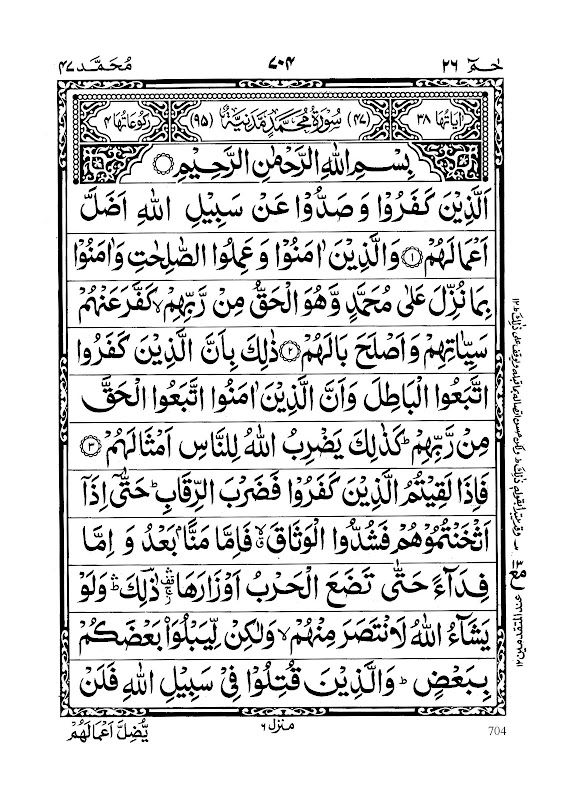 حٰمٓ ٢٦
٧٠٤
مُحَمَّد ٤٧
اٰیَاتُهَا ٣٨
(٤٧) سُوْرَةُ مُحَمَّدٍ مَّدَنِيَّةٌ (٩٥)
رُكُوْعَاتُهَا ٤
بِسْمِ اللّٰهِ الرَّحْمٰنِ الرَّحِيْمِ ○
اَلَّذِيْنَ كَفَرُوْا وَ صَدُّوْا عَنْ سَبِيْلِ اللّٰهِ اَضَلَّ
اَعْمَالَهُمْ ۝١ وَالَّذِيْنَ اٰمَنُوْا وَ عَمِلُوا الصّٰلِحٰتِ وَاٰمَنُوْا
بِمَا نُزِّلَ عَلٰى مُحَمَّدٍ وَّهُوَ الْحَقُّ مِنْ رَّبِّهِمْ ۙ كَفَّرَ عَنْهُمْ
سَيِّاٰتِهِمْ وَاَصْلَحَ بَالَهُمْ ۝٢ ذٰلِكَ بِاَنَّ الَّذِيْنَ كَفَرُوا
اتَّبَعُوا الْبَاطِلَ وَاَنَّ الَّذِيْنَ اٰمَنُوا اتَّبَعُوا الْحَقَّ
مِنْ رَّبِّهِمْ ؕ كَذٰلِكَ يَضْرِبُ اللّٰهُ لِلنَّاسِ اَمْثَالَهُمْ ۝٣
فَاِذَا لَقِيْتُمُ الَّذِيْنَ كَفَرُوْا فَضَرْبَ الرِّقَابِ ؕ حَتّٰٓى اِذَآ
اَثْخَنْتُمُوْهُمْ فَشُدُّوا الْوَثَاقَ ۙ فَاِمَّا مَنًّۢا بَعْدُ وَ اِمَّا
فِدَآءً حَتّٰى تَضَعَ الْحَرْبُ اَوْزَارَهَا ۛ ذٰلِكَ ۛؕ وَلَوْ
يَشَآءُ اللّٰهُ لَانْتَصَرَ مِنْهُمْ ۙ وَلٰكِنْ لِّيَبْلُوَا۟ بَعْضَكُمْ
بِبَعْضٍ ؕ وَالَّذِيْنَ قُتِلُوْا فِيْ سَبِيْلِ اللّٰهِ فَلَنْ
يُّضِلَّ اَعْمَالَهُمْ
منزل ٦
704